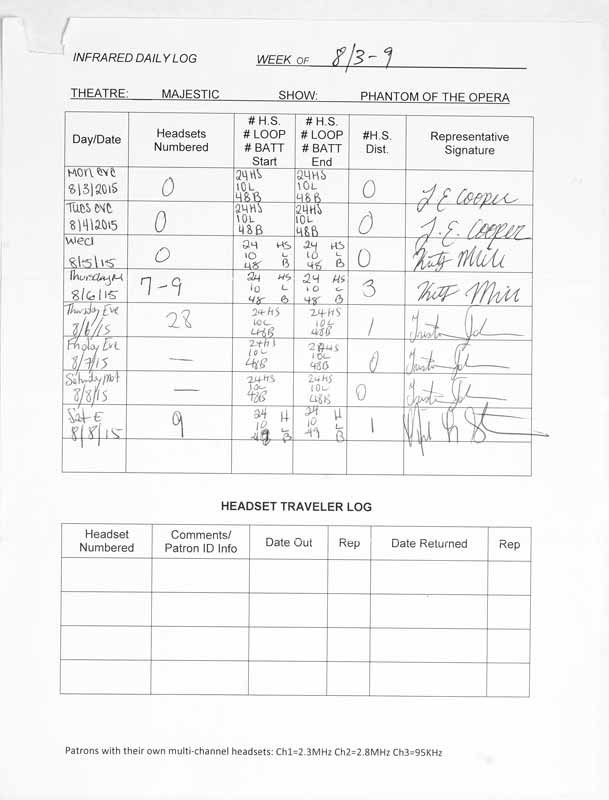 INFRARED DAILY LOG WEEK OF 8/3-9
THEATRE: MAJESTIC SHOW: PHANTOM OF THE OPERA
Day/Date Headsets Numbered # H.S. # LOOP # BATT Start # H.S. # LOOP # BATT End #H.S. Dist. Representative Signature
Mon eve 8/3/2015 0 24HS 10L 48B 24HS 10L 48B 0 J E Cooper
Tues eve 8/4/2015 0 24HS 10L 48B 24HS 10L 48B 0 J. E. Cooper
Wed 8/5/15 0 24 HS 10 L 48 B 24 HS 10 L 48 B 0
Thursday M 8/6/15 7-9 24 HS 10 L 48 B 24 HS 10 L 48 B 3
Thursday Eve 8/6/15 28 24HS 10L 48B 24HS 10L 48B 1
Friday Eve 8/7/15 — 24HS 10L 48B 24HS 10L 48B 0
Saturday Mat 8/8/15 — 24HS 10L 48B 24HS 10L 48B 0
Sat E 8/8/15 9 24 H 10 L B 24 H 10 L 49 B 1
HEADSET TRAVELER LOG
Headset Numbered Comments/ Patron ID Info Date Out Rep Date Returned Rep
Patrons with their own multi-channel headsets: Ch1=2.3MHz Ch2=2.8MHz Ch3=95KHz